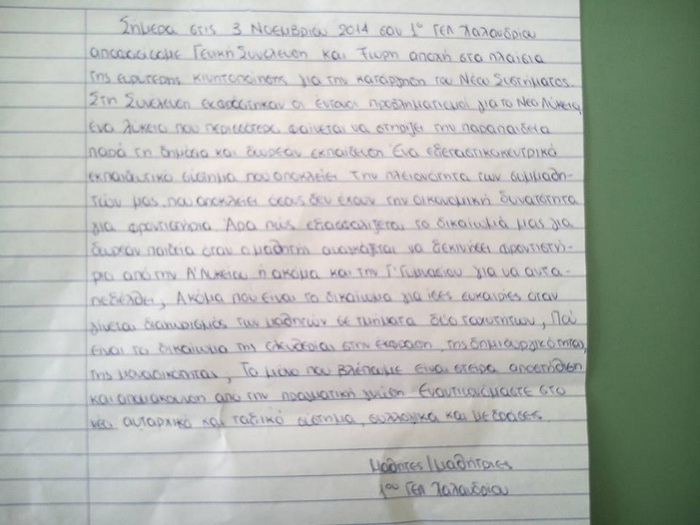 Σήμερα στις 3 Νοεμβρίου 2014 στο 1ο ΓΕΛ Χαλανδρίου
αποφασίσαμε Γενική Συνέλευση και 7ωρη αποχή στα πλαίσια
της ευρύτερης κινητοποίησης για την κατάργηση του Νέου Συστήματος.
Στη Συνέλευση εκφράστηκαν οι έντονοι προβληματισμοί για το Νέο Λύκειο,
ένα λύκειο που περισσότερο φαίνεται να στηρίζει την παραπαιδεία
παρά τη δημόσια και δωρεάν εκπαίδευση. Ένα εξεταστικοκεντρικό
εκπαιδευτικό σύστημα που αποκλείει την πλειονότητα των συμμαθη-
τών μας, που αποκλείει όσους δεν έχουν την οικονομική δυνατότητα
για φροντιστήρια. Άρα πώς εξασφαλίζεται το δικαίωμά μας για
δωρεάν παιδεία όταν ο μαθητής αναγκάζεται να ξεκινήσει φροντιστή-
ριο από την Α' Λυκείου ή ακόμα και την Γ' Γυμνασίου για να αντα-
πεξέλθει; Ακόμα που είναι το δικαίωμα για ίσες ευκαιρίες όταν
γίνεται διαχωρισμός των μαθητών σε τμήματα δύο ταχυτήτων; Πού
είναι το δικαίωμα της ελευθερίας στην έκφραση, της δημιουργικότητας,
της μοναδικότητας; Το μόνο που βλέπουμε είναι στείρα αποστήθιση
και απομάκρυνση από την πραγματική γνώση. Εναντιωνόμαστε στο
νέο αυταρχικό και ταξικό σύστημα, συλλογικά και με δράσεις.
Μαθητές/μαθήτριες
1ου ΓΕΛ Χαλανδρίου